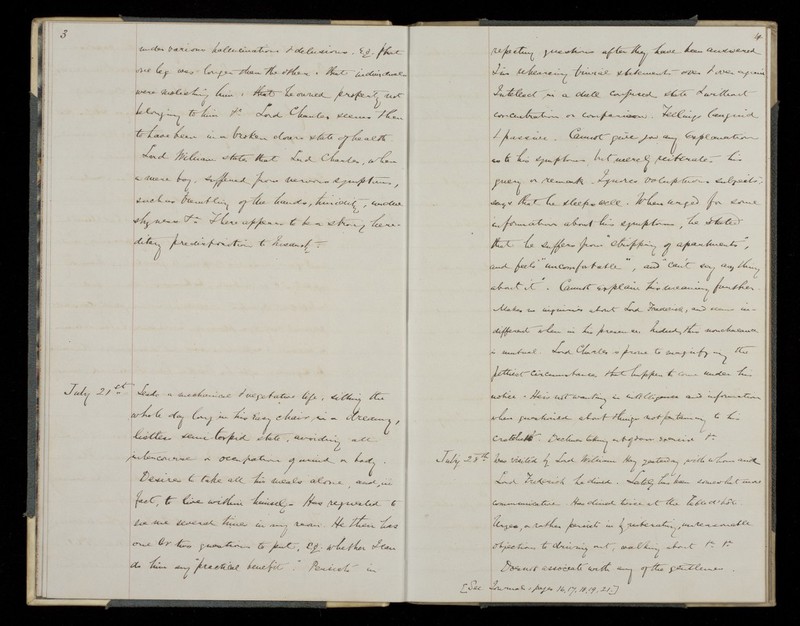 3
under various hallucinations & delusions. E.g. that
one leg was longer than the other. that individuals
were him. that he owned property not
belonging to him &c. Lord Charles seems then
to have been in a broken down state of health.
Lord William states that Lord Charles, when
a mere boy, suffered from nervous symptoms,
such as trembling of the hands, timidity, undue
shyness &c. There appears to be a strong here-
ditary predisposition to Insanity.
July 21st Leads a mechanical & vegetative life, sitting the
whole day long in his easy chair, in a dreamy,
listless semi torpid state, avoiding all
intercourse or occupation of mind or body.
Desires to take all his meals alone, and, in
fact, to live within himself. Has requested to
see me several times in my room. He then has
one or two questions to put, e.g. whether I can
do him any "practical benefit". Persists in
4
repeating questions after they have been answered
& in rehearsing trivial statements over & over again
Intellect in a dull confused state & without
concentration or comparison. Feelings languid
& passive. Cannot give you any explanation
as to his symptoms, but merely reiterates his
query or remark. Ignores voluptuous subjects;
says that he sleeps well. When urged for some
information about his symptoms, he stated
that he suffers from "chopping of apartments",
and feels "uncomfortable", and "can't say anything
about it". Cannot explain his meaning further.
Makes no inquiries about Lord Frederick, and seems in-
different when in his presence. Indeed, this nonchalance
is mutual. Lord Charles is prone to magnify any the
pettiest circumstances that happen to come under his
notice. He is not wanting in intelligence and information
when questioned about things not pertaining to his
crotchets. Declines taking outdoor exercise &c
July 28th Was visited by Lord William Hay yesterday, with whom and
Lord Frederick he dined. Lately has been somewhat more
communicative. Has dined twice at the Table d'hôte.
Urges, or rather persists in reiterating, unreasonable
objections to driving out, walking about &c &c
Does not associate with any of the gentlemen.
[See Journal, pages 16, 17, 18, 19, 21.]